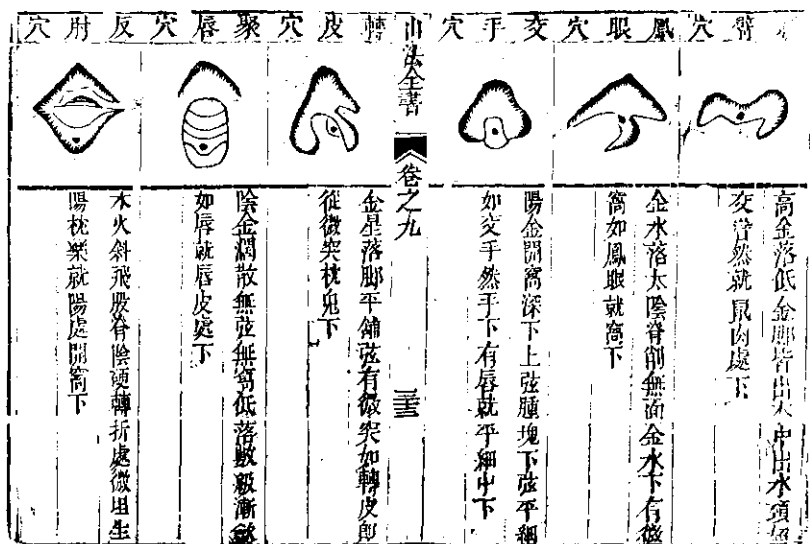 臂穴
高金落低金腳皆出中出水頭
交臂然就鼠肉處下
鳳眼穴
金水落太陰脊削無面金水下有微
窩如鳳眼就窩下
交手穴
陽金開窩深下上弦腫塊下弦平細
如交手然手下有唇就平細中下
山法全書
卷之九
轉皮穴
金星落腳平鋪弦有微突如轉皮即
從微突枕鬼下
聚唇穴
陰金濶散無弦無窩低落數級漸斂
如唇就唇皮處下
反肘穴
木火斜飛股脊陰硬轉折處微坦生
陽枕樂就陽處開窩下